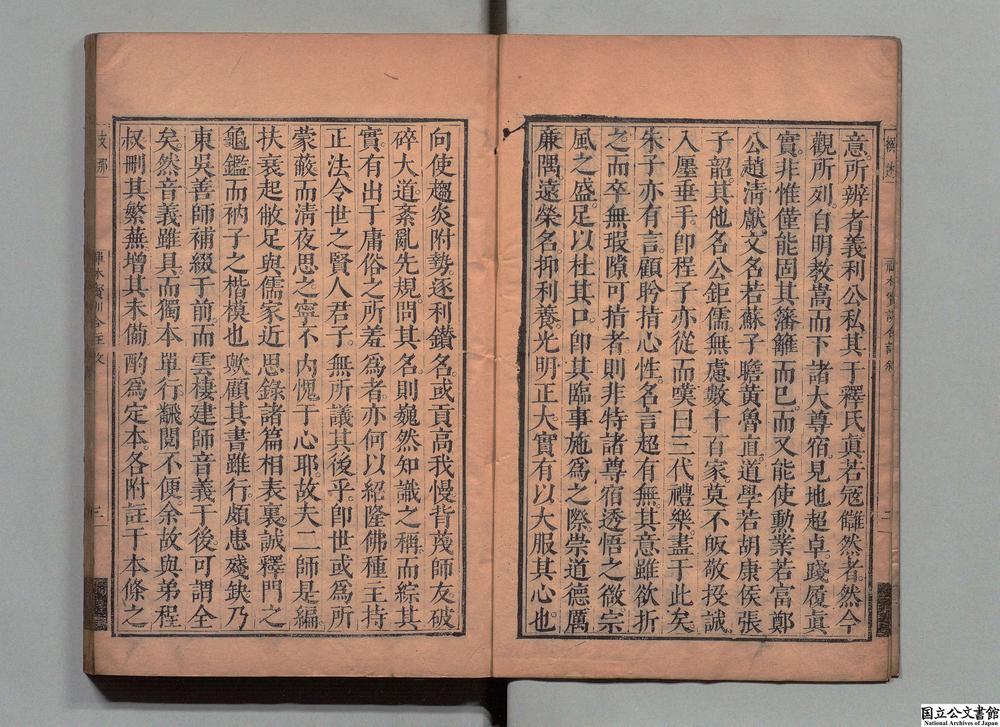 意所辨者義利公私其于釋氏眞若寇讎然者然今
觀所列自明教嵩而下諸大尊宿見地超卓踐履眞
實非惟僅能固其籓籬而已而又能使勳業若富鄭
公趙清獻文名若蘇子瞻黃魯直道學若胡康侯張
子韶其他名公鉅儒無慮數十百家莫不皈敬投誠
入壓垂手卽程子亦從而嘆曰三代禮樂盡于此矣
朱子亦有言顧肹指心性名言超有無其意雖欲折
之而卒無瑕隙可指者則非特諸尊宿透悟之微宗
風之盛足以杜其口卽其臨事施爲之際崇道德厲
廉隅遠榮名抑利養光明正大實有以大服其心也
向使趨炎附勢逐利鑽名或貢高我慢背蔑師友破
碎大道紊亂先規問其名則巍然知識之稱而綜其
實有出于庸俗之所羞爲者亦何以紹隆佛種主持
正法令世之賢人君子無所議其後乎卽世或爲所
蒙蔽而淸夜思之寧不內愧于心耶故夫二師是編
扶衰起敝足與儒家近思錄諸篇相表裏誠釋門之
龜鑑而衲子之楷模也歟顧其書雖行頗患殘缺乃
東吳善師補綴于前而雲棲建師音義于後可謂全
矣然音義雖具而獨本單行飜閱不便余故與弟程
叔刪其繁蕪增其未備酌爲定本各附註于本條之
二
三
国立公文書館
National Archives of Japan